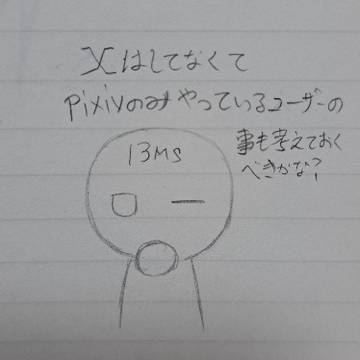 Xはしてなくて
pixivのみやっているユーザーの
事も考えておく
べきかな?
13MS